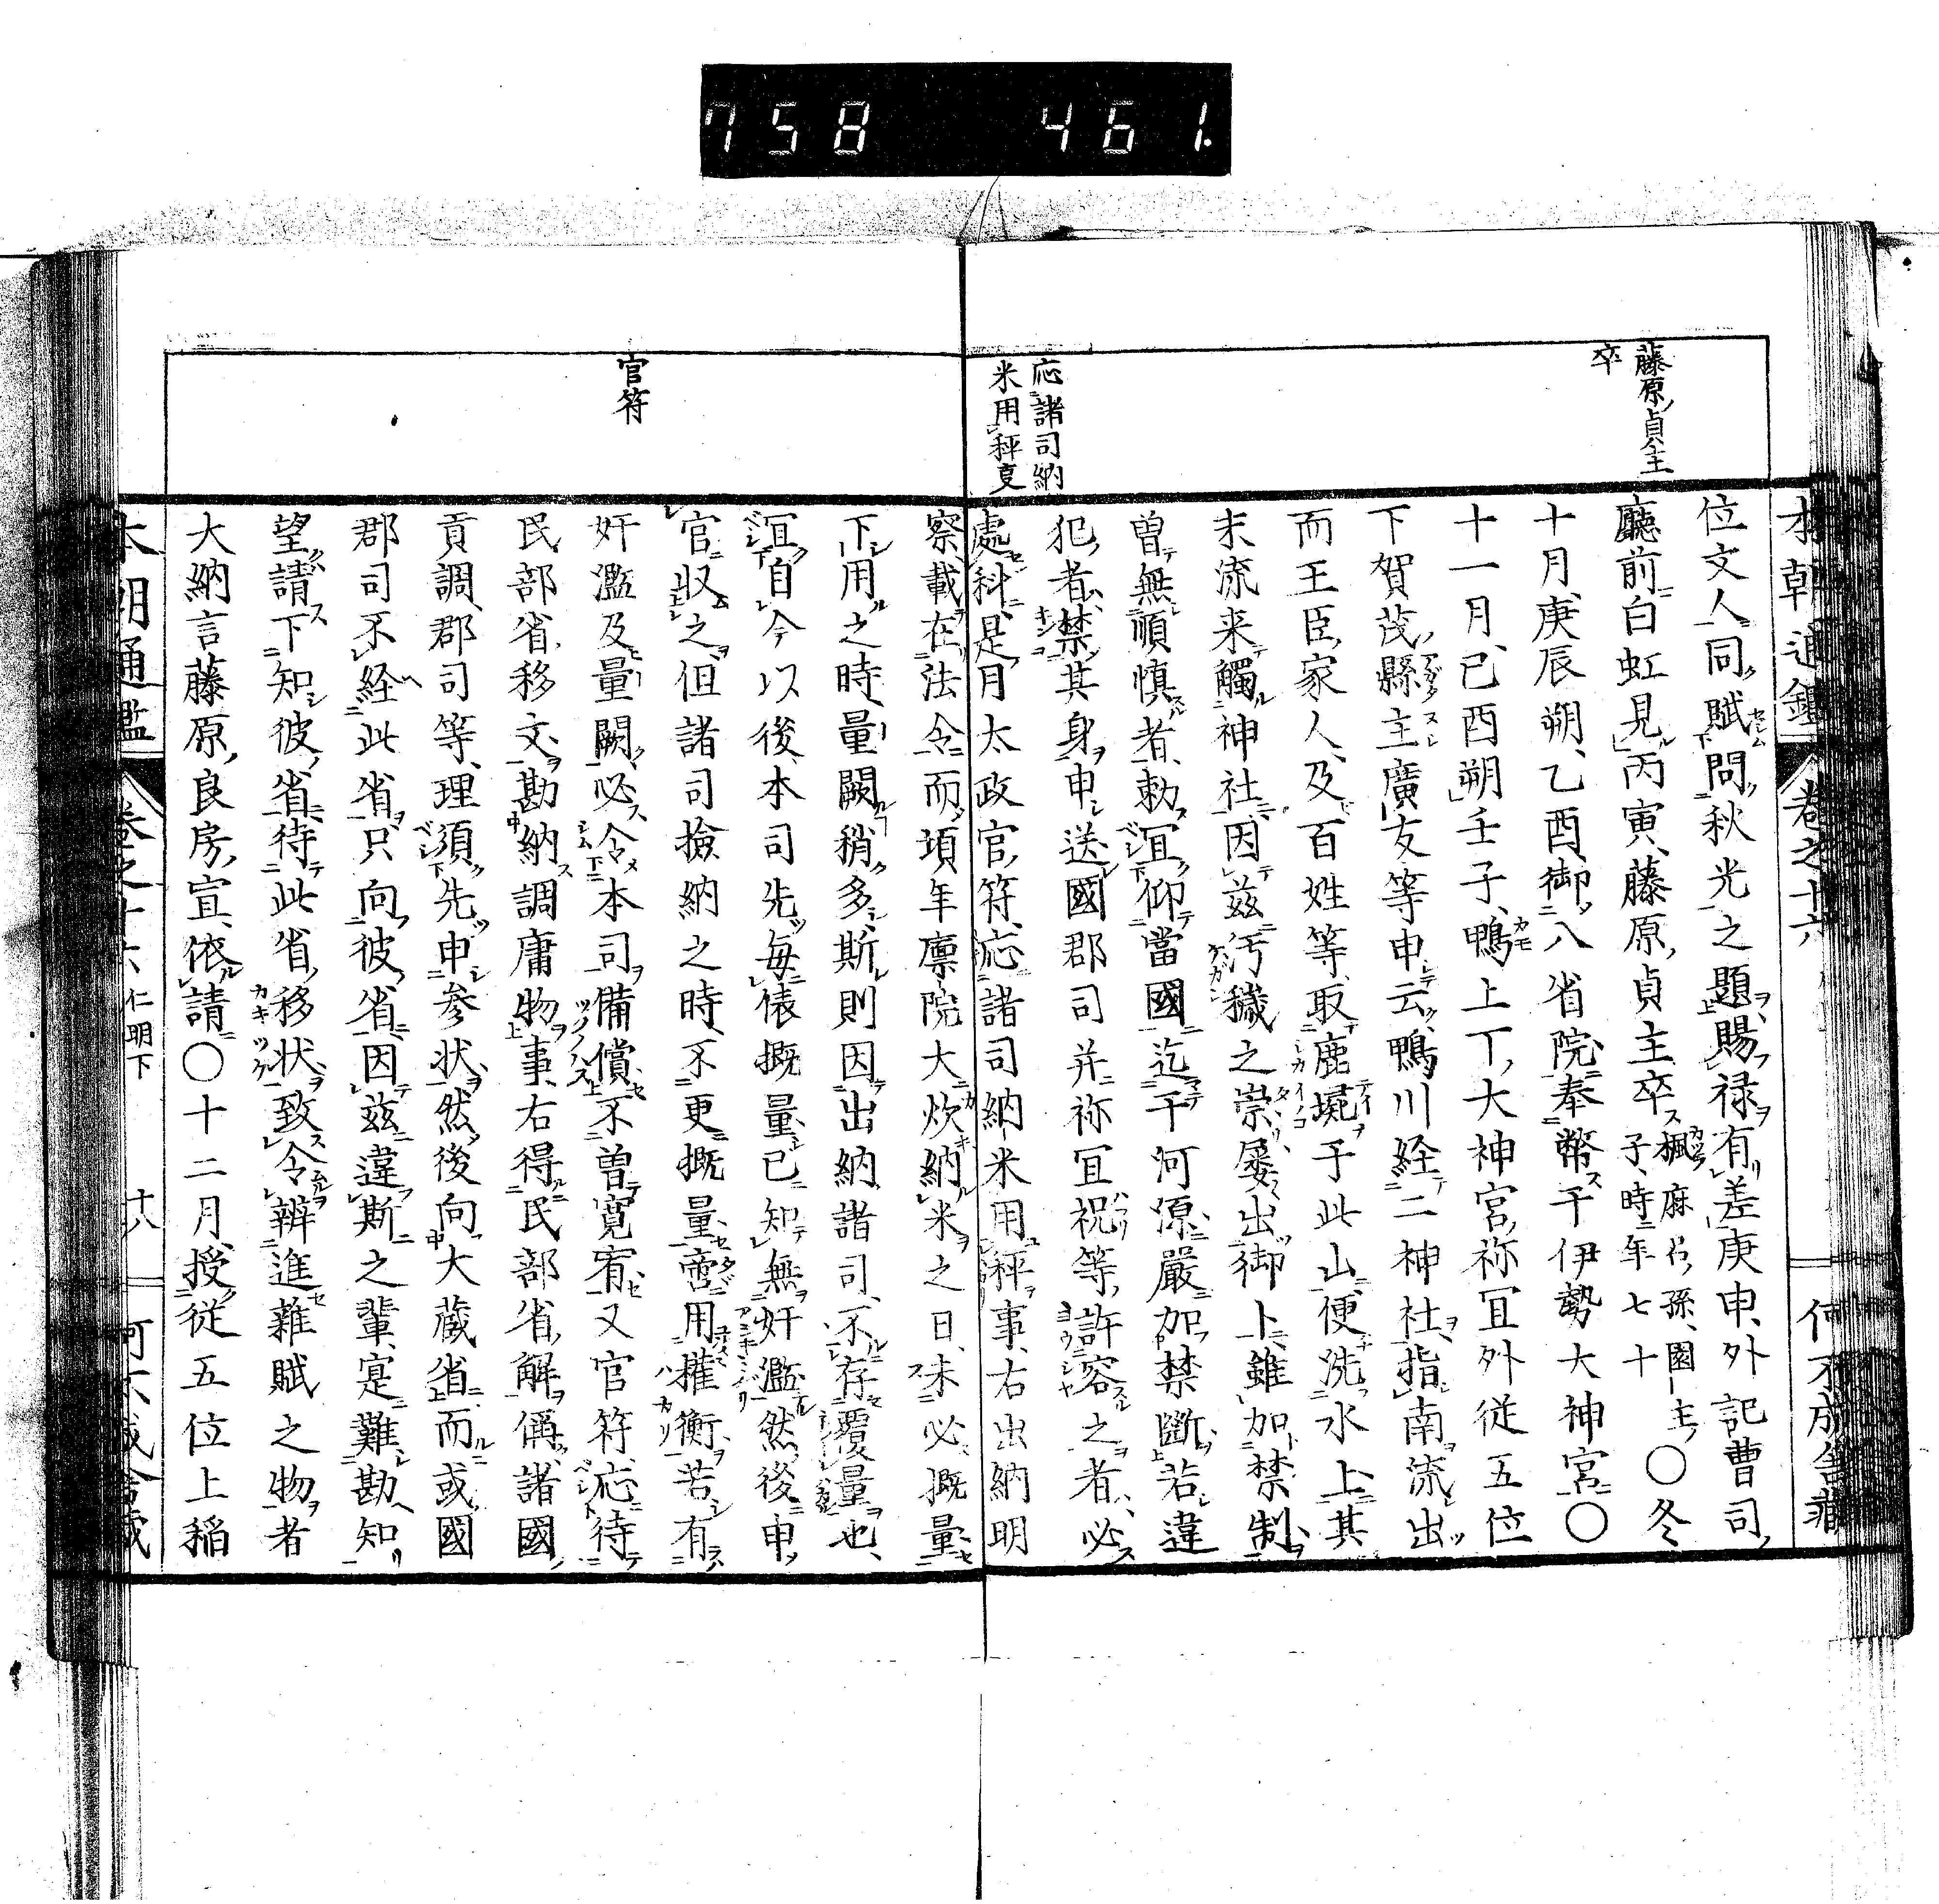 758 461.
本朝通鑑 卷之十六 何不成舎蔵
藤原貞主
卒
応諸司納
米用秤事
位文人同賦問秋光之題賜禄有差庚申外記曹司
廳前白虹見丙寅藤原貞主卒楓麻呂孫園主子時年七十〇冬
十月庚辰朔乙酉御八省院奉幣于伊勢大神宮〇
十一月己酉朔壬子鴨上下大神宮祢冝外従五位
下賀茂縣主廣友等申云鴨川経二神社指南流出
而王臣家人及百姓等取鹿𡱈于此山便洗水上其
末流来觸神社因茲汚穢之祟屡出御卜雖加禁制
曽無順慎者勅冝仰當國迄于河源嚴加禁斷若違
犯者禁其身申送國郡司并祢冝祝等許容之者必
處科是月太政官符応諸司納米用秤事右出納明
官符
察載在法令而項年廪院大炊納米之日未必概量
下用之時量闕稍多斯則因出納諸司不存覆量也
冝自今以後本司先毎俵概量已知無奸濫然後申
官収之但諸司撿納之時不更概量啻用權衡若有
奸濫及量闕必令本司備償不曽寛宥又官符応待
民部省移文勘納調庸物事右得民部省解偁諸國
貢調郡司等理須先申参状然後向大蔵省而或國
郡司不経此省只向彼省因茲違斯之輩寔難勘知
望請下知彼省待此省移状致令辨進雜賦之物者
大納言藤原良房宣依請〇十二月授従五位上稲
本朝通鑑 卷之十六 仁明下 十八 何不成舎蔵